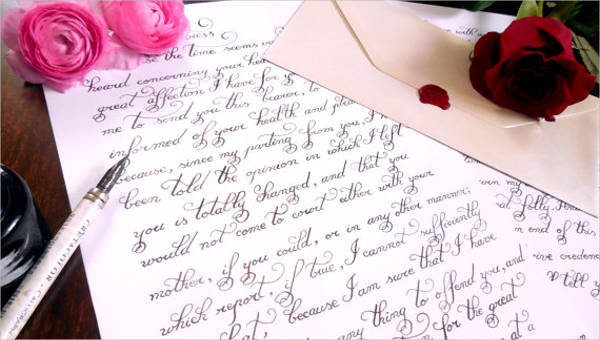 ress
se the time seems
heard concerning your
great affection I have for
me to send you this bearer, to
informed of your health and
because, since my parting from you, I
been told the opinion in which I left
you is totally changed, and that you
would not come to court either with your
mother, if you could, or in any other manner;
which report, if true, I cannot sufficiently
hat, because I am sure that I have
any thing to offend you, and
n for the great
at a
with
my
folly.
n end of this
ive
tell